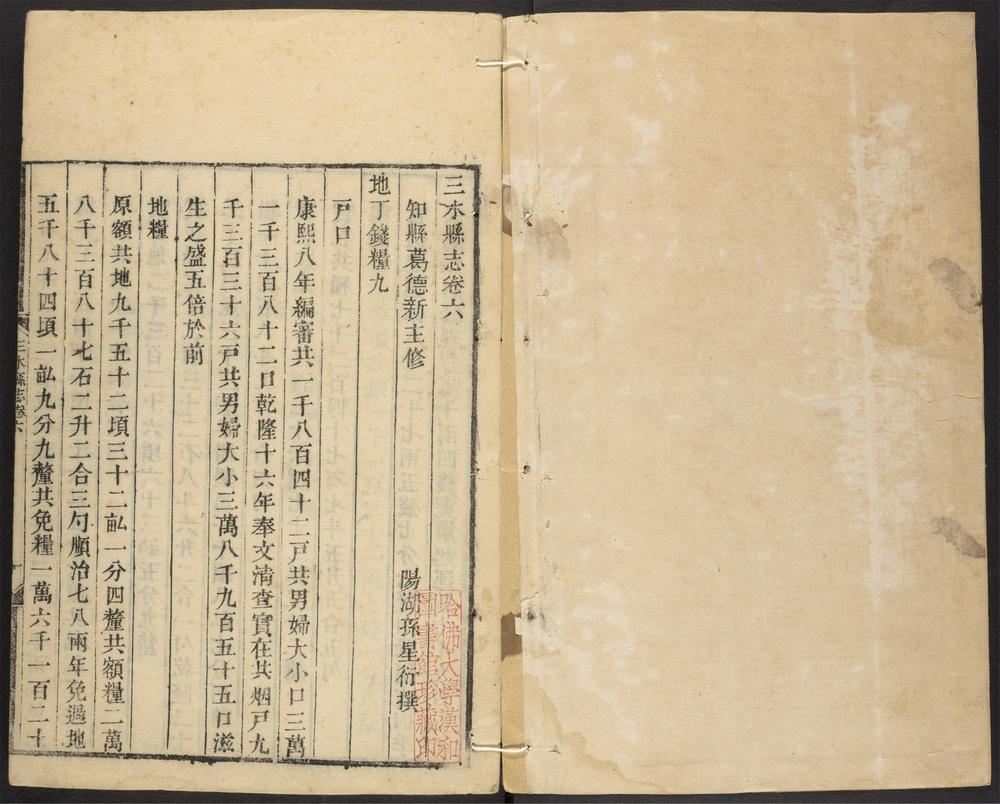 三水縣志卷六
知縣葛德新主修
陽湖孫星衍撰
地丁錢糧九
戸口
康熙八年編審共一千八百四十二戸共男婦大小口三萬
一千三百八十二口乾隆十六年奉文清查實在共烟戸九
千三百三十六戸共男婦大小三萬八千九百五十五口滋
生之盛五倍於前
地糧
原額共地九千五十二頃三十二畆一分四釐共額糧二萬
八千三百八十七石二升二合三勺順治七八兩年免過地
五千八十四頃一畆九分九釐共免糧一萬六千一百二十
三水縣志卷六
哈佛大學漢和
圖書館珍藏印